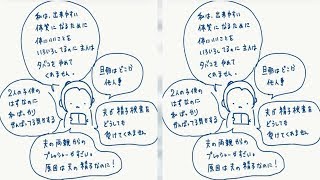 私は、出来やすい
体質になるために
体にいいことを
いろいろしてるのに主人は
タバコをやめて
くれません。
旦那はどこか
他人事
2人の子供の
はずなのに
私ばっかり
がんばってる気がする
夫が精子検査を
どうしても
受けてくれません
夫の両親からの
プレッシャーがすごい。
原因は夫の精子なのに!
私は、出来やすい
体質になるために
体にいいことを
いろいろしてるのに主人は
タバコをやめて
くれません。
旦那はどこか
他人事
2人の子供の
はずなのに
私ばっかり
がんばってる気がする
夫が精子検査を
どうしても
受けてくれません
夫の両親からの
プレッシャーがすごい。
原因は夫の精子なのに!